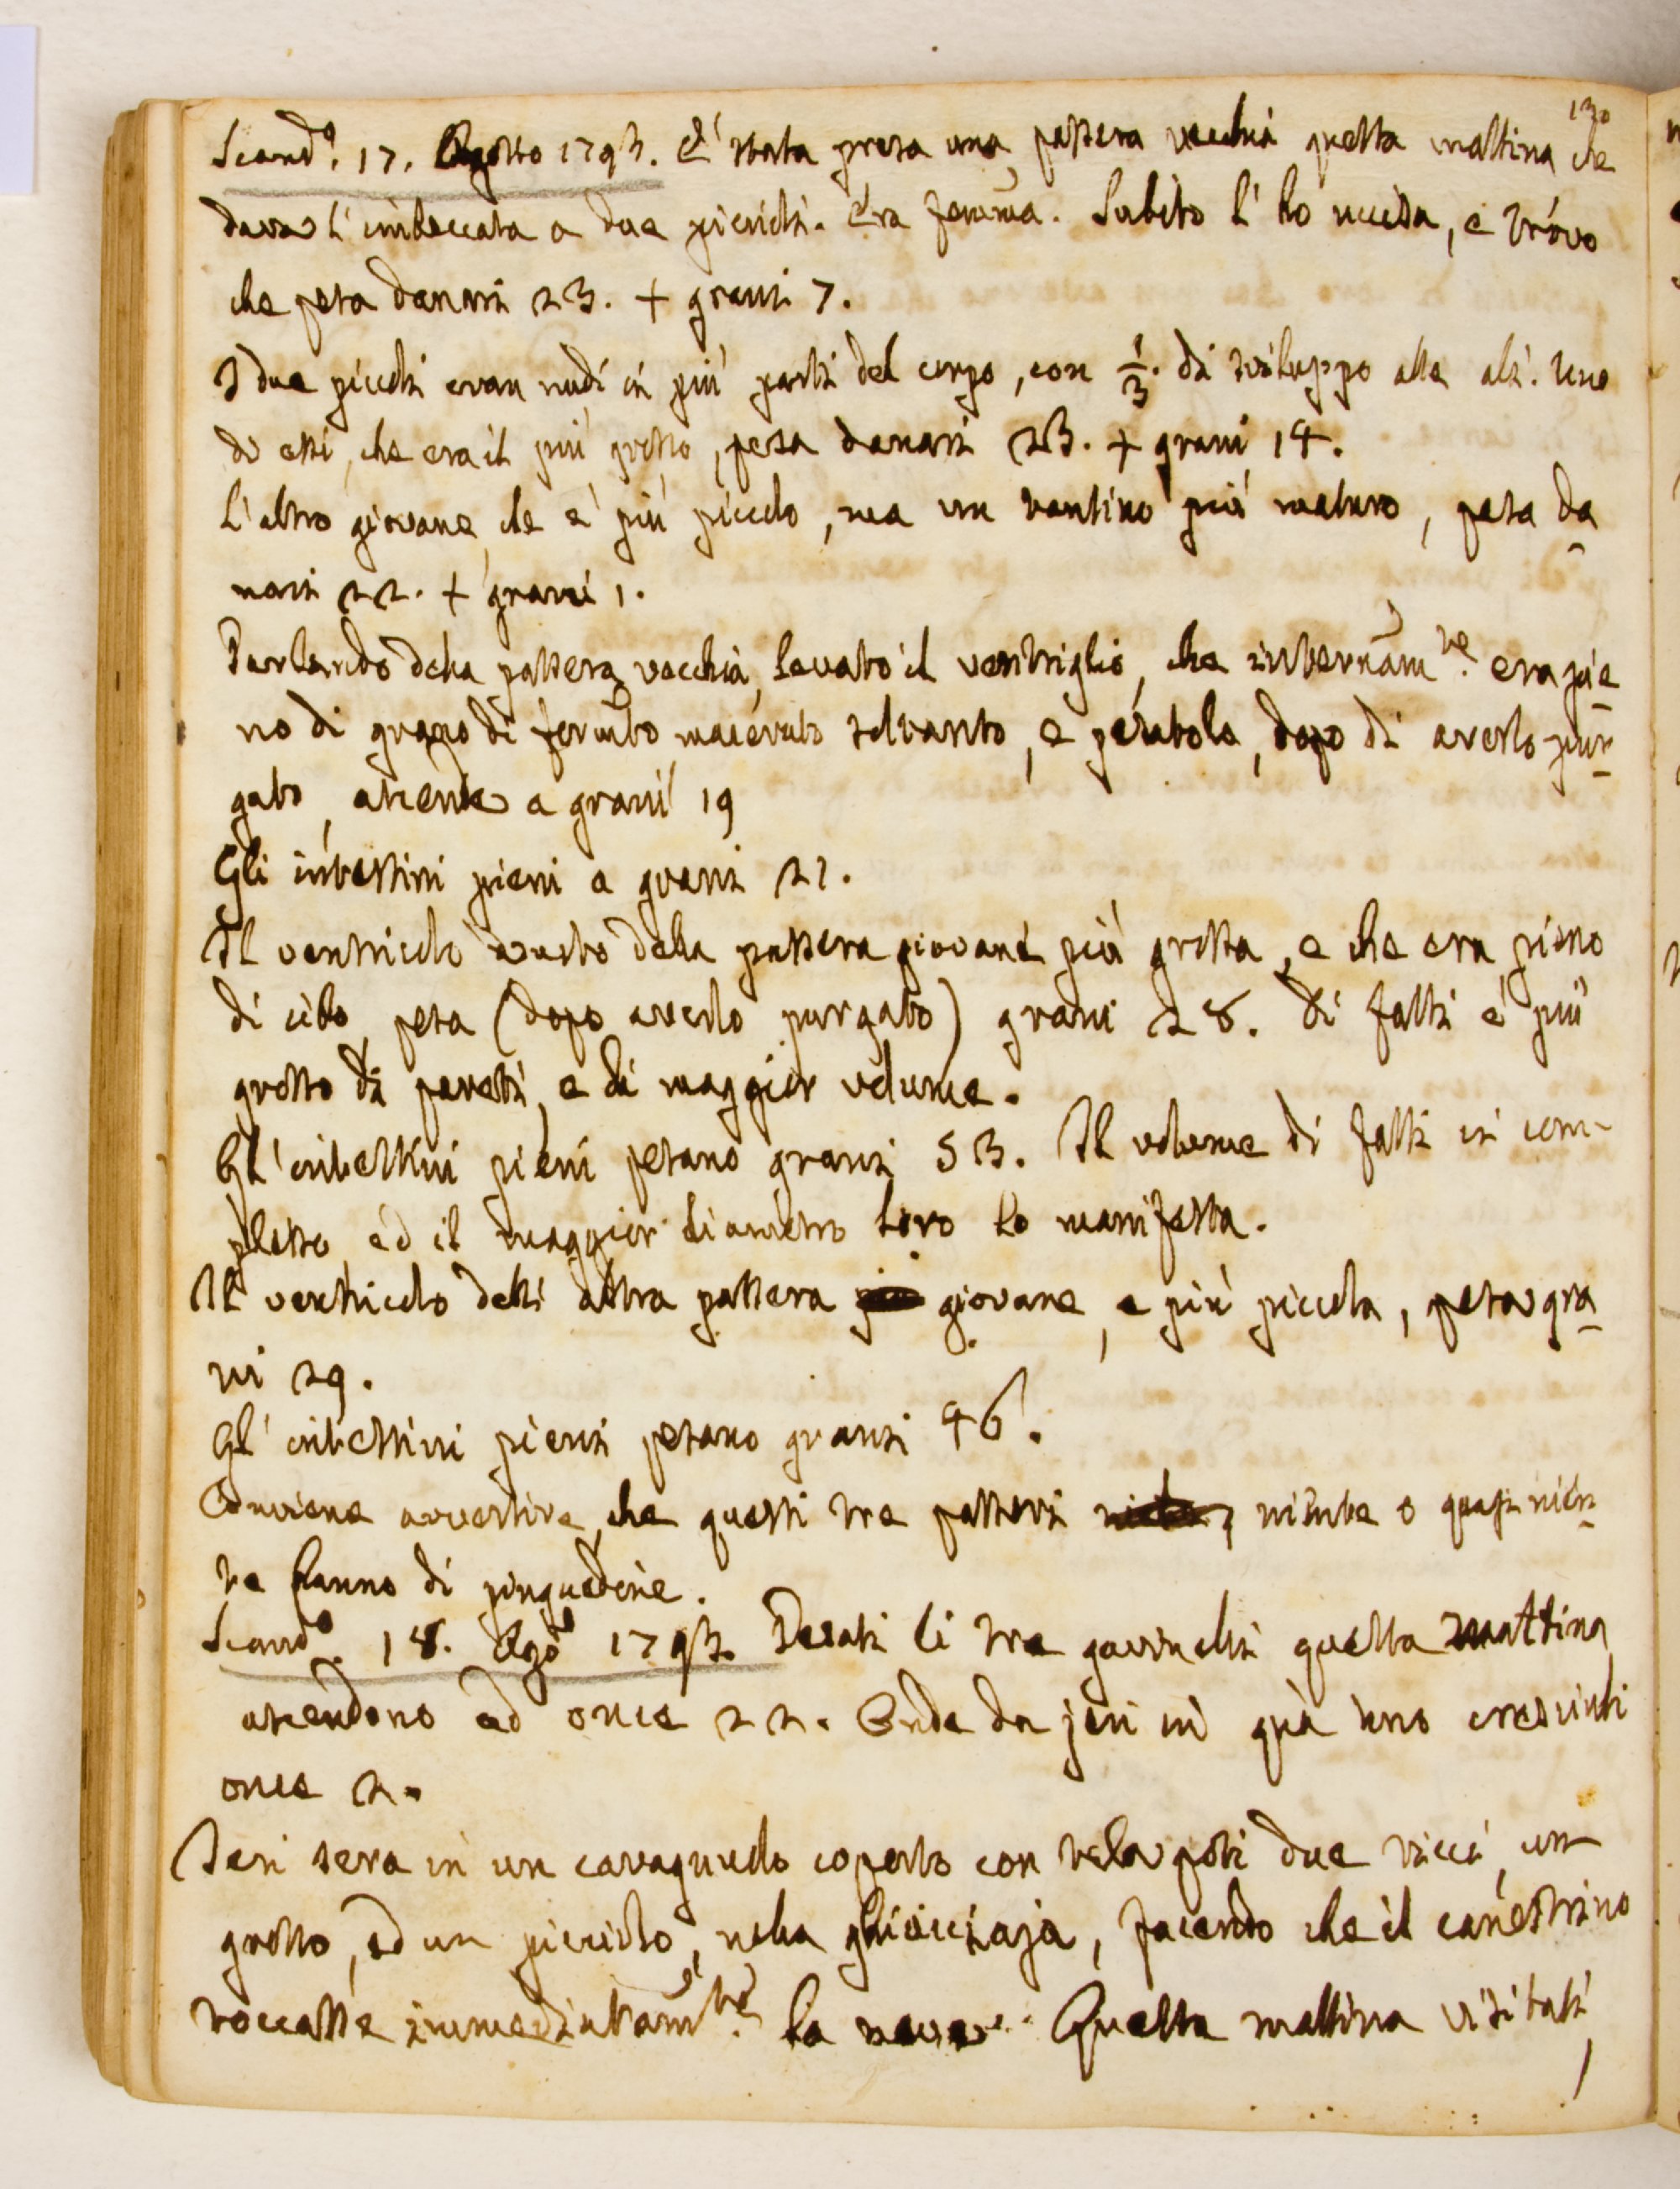 130
Scand.º 17. Agosto 1793. E' stata presa una passera vecchia questa mattina che
dava l'imbeccata a due piccioli. Era femina. Subito l'ho uccisa, e trovo
che pesa danari 23. + grani 7.
I due piccoli eran nudi in più parti del corpo, con 1/3. di sviluppo alle ali. Uno
di essi, che era il più grosso, pesa danari 23. + grani 14.
L'altro giovane, che è più piccolo, ma un tantino più maturo, pesa da
nari 22. + grani 1.
Parlando della passera vecchia, levato il ventriglio, che internam.te era pie
no di grano di formto macerato, e dopo di averlo pur
gato, ascende a grani 19
Gli intestini pieni a grani 21.
Il ventricolo della passera giovane più grossa, e che era pieno
di cibo, pesa (dopo averlo purgato) grani 28. Di fatti è più
grosso di pareti, e di maggior volume.
Gl'intestini pieni pesano grani 53. Il volume di fatti in com-
plesso, ed il maggior diametro loro lo manifesta.
Il ventricolo dell'altra passera giovane, e più piccola, pesa gra
ni 29.
Gl'intestini pieni pesano grani 46.
Conviene avvertire, che questi tre passeri niente o quasi nien
te hanno di pinguedine.
Scand.º 18. Ago.º 1793. Pesati li tre gavinelli questa mattina
ascendono ad once 22. Onde da jeri in quà sono cresciuti
once 2.
Jeri sera in un cavagnuolo coperto con tela posi due ricci, un
grosso, ed un picciolo, nella ghiacciaja, facendo che il canestrino
toccasse immediatam.te la neve. Questa mattina visitati,